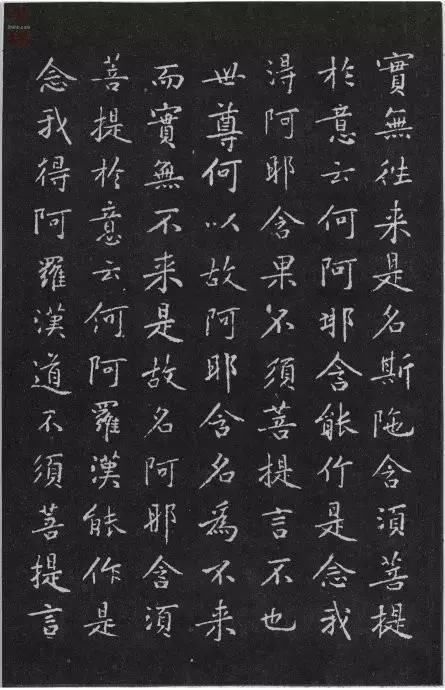 實無往来是名斯陁含須菩提
於意云何阿耶含能作是念我
淂阿耶含果不須菩提言不也
世尊何以故阿耶含名為不来
而實無不来是故名阿耶含須
菩提於意云何阿羅漢能作是
念我得阿羅漢道不須菩提言